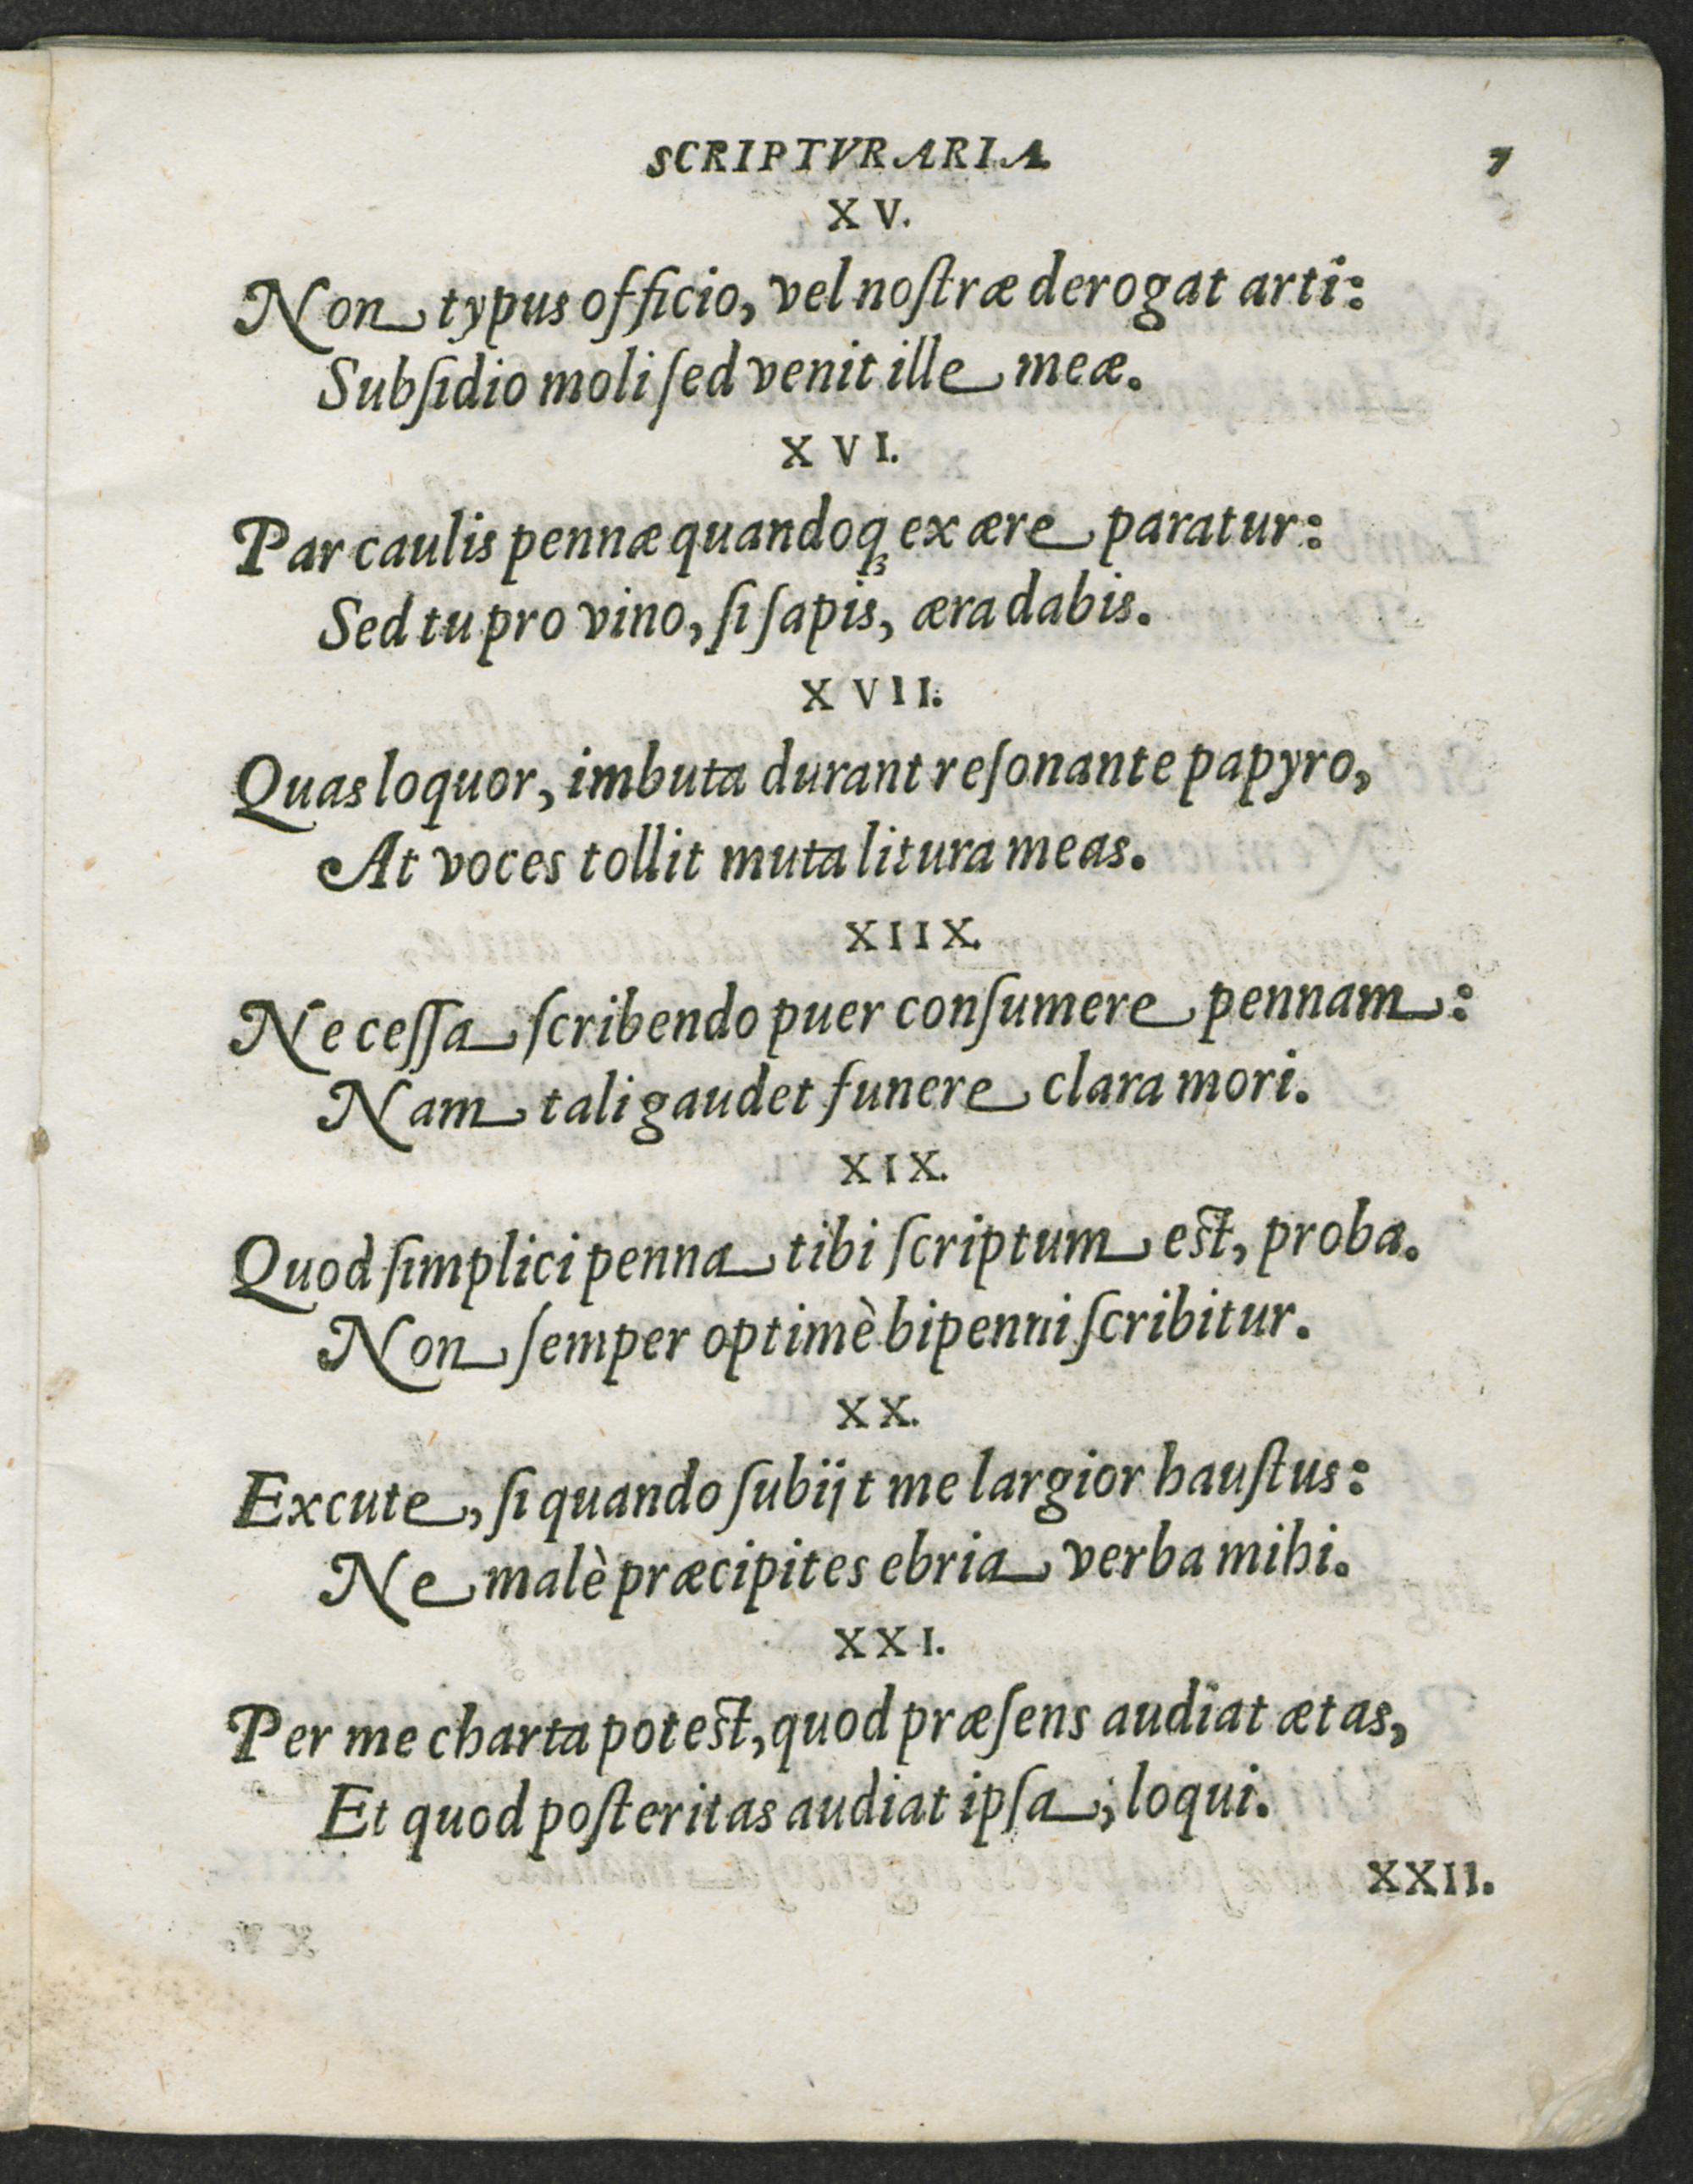 SCRIPTVRARIA 7
XV.
Non typus officio, vel noſtræ derogat arti:
Subſidio moli ſed venit ille meæ.
XVI.
Par caulis pennæ quandoꝗ ex ære paratur:
Sed tu pro vino, ſi ſapis, æra dabis.
XVII.
Quas loquor, imbuta durant reſonante papyro,
At voces tollit muta litura meas.
XIIX.
Ne ceſſa ſcribendo puer conſumere pennam:
Nam tali gaudet funere clara mori.
XIX.
Quod ſimplici penna tibi ſcriptum eſt, proba.
Non ſemper optimè bipenni ſcribitur.
XX.
Excute, ſi quando ſubijt me largior hauſtus:
Ne malè præcipites ebria verba mihi.
XXI.
Per me charta poteſt, quod præſens audiat ætas,
Et quod poſteritas audiat ipſa; loqui.
XXII.